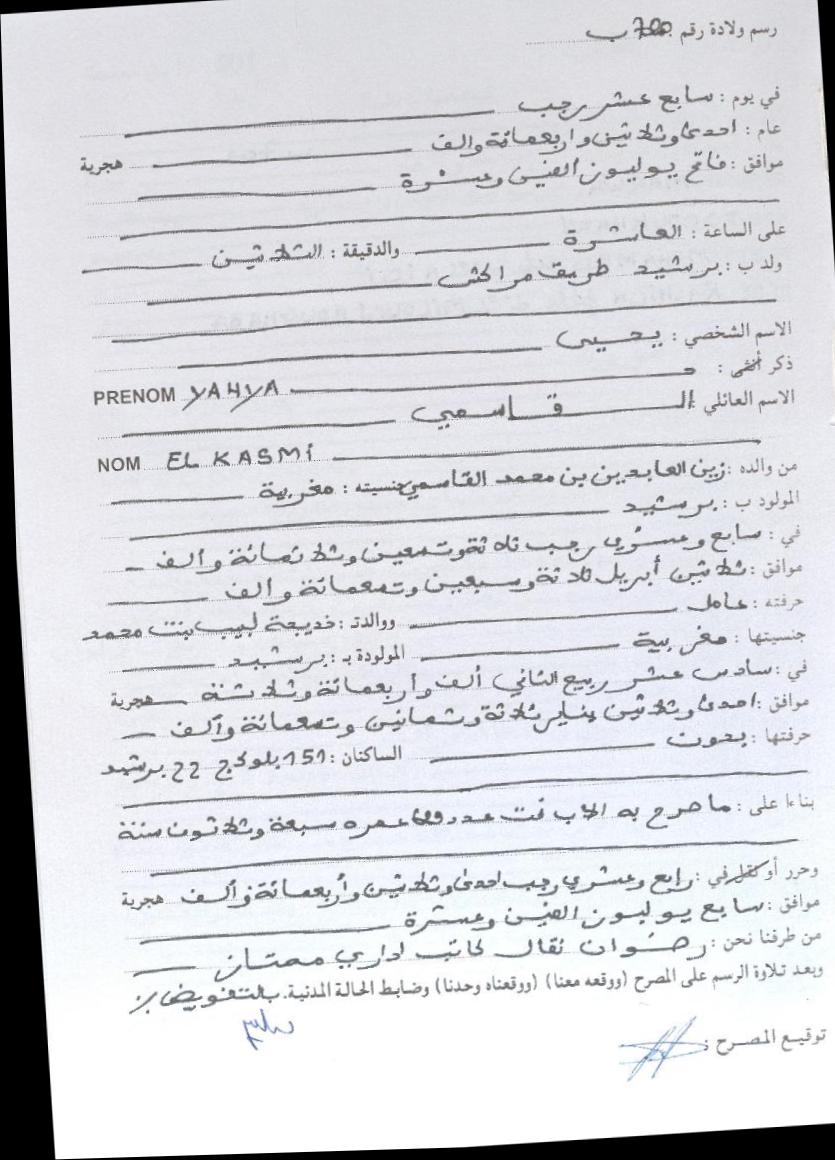 رسم ولادة رقم
في يوم : سابع عشر رجب
عام : احدى وثلاثين واربعمائة والف هجرية
موافق : فاتح يوليوز الفين وعشرة
على الساعة : العاشرة والدقيقة : الثلاثين
ولد ب : برشيد طريق مراكش
الاسم الشخصي : يحيى
ذكر أنثى :
PRENOM YAHYA
الاسم العائلي : القاسمي
NOM EL KASMI
من والده : زين العابدين بن محمد القاسمي جنسيته : مغربية
المولود ب : برشيد
في : سابع وعشري رجب ثلاثة وتسعين وثلاثمائة وألف
موافق : ثلاثين أبريل ثلاثة وسبعين وتسعمائة والف
حرفته : عامل ووالدته : خديجة لبيب بنت محمد
جنسيتها : مغربية المولودة بـ : برشيد
في : سادس عشر ربيع الثاني ألف وأربعمائة وثلاثة هجرية
موافق : احدى وثلاثين يناير ثلاثة وثمانين وتسعمائة وألف
حرفتها : بدون الساكنان : 151 بلوك ج 22 برشيد
بناءا على : ما صرح به الاب عمره سبعة وثلاثون سنة
وحرر أو نقل في : رابع وعشري رجب احدى وثلاثين وأربعمائة وألف هجرية
موافق : سابع يوليوز الفين وعشرة
من طرفنا نحن : رضوان نقال كاتب اداري ممتاز
وبعد تلاوة الرسم على المصرح (ووقعه معنا) (ووقعناه وحدنا) وضابط الحالة المدنية. بالتفويض
توقيع المصرح :